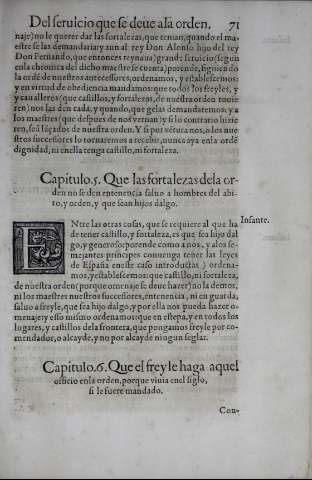 Del seruicio que se deue a la orden, 71
naje) no le querer dar las fortalezas, que tenian, quando el ma-
estre se las demandaria: y aun al rey Don Alonso hijo del rey
Don Fernando, que entonces reynaua) grand; seruicio (segun
en la chronica del dicho maestre se cuenta) porende, siguiendo
la ordé de nuestros antecessores, ordenamos, y establescemos:
y en virtud de obediencia mandamos: que todos los freyles, y
y caualleros (que castillos, y fortalezas, de nuestra orden tuuie
ren) nos las den cada, y quando, que gelas demandaremos, y a
los maestres (que despues de nos vernan) y si lo contrario hizie
ren, seá láçados de nuestra orden. Y si por vētura nos, o los nue
stros successores lo tornaremos a recebir, nunca aya enla ordē
dignidad, ni en ella tenga castillo, ni fortaleza.
Capitulo. 5. Que las fortalezas dela or-
den no se den entenencia saluo a hombres del abi-
to, y orden, y que sean hijos dalgo.
ENtre las otras cosas, que se requiere al que ha
Infante.
de tener castillo, y fortaleza, es que sea hijo dal
go, y generoso: porende como a nos, y a los se-
mejantes principes conuenga tener las leyes
de España en este caso introductas) ordena-
mos, y establescemos: que castillo, ni fortaleza,
de nuestra orden (porque omenaje se deue hazer) no la demos,
ni los maestres nuestros successores, en tenencia, ni en guarda,
saluo a freyle, que sea hijo dalgo, y por ella nos pueda hazer o-
menaje: y esso mismo ordenamos: que en estepa, y en todos los
lugares, y castillos dela frontera, que pongamos freyle por co-
mendador, o alcayde, y no por alcayde ningun seglar.
Capitulo. 6. Que el freyle haga aquel
officio enla orden, porque viuia enel siglo,
si le fuere mandado.
Con-